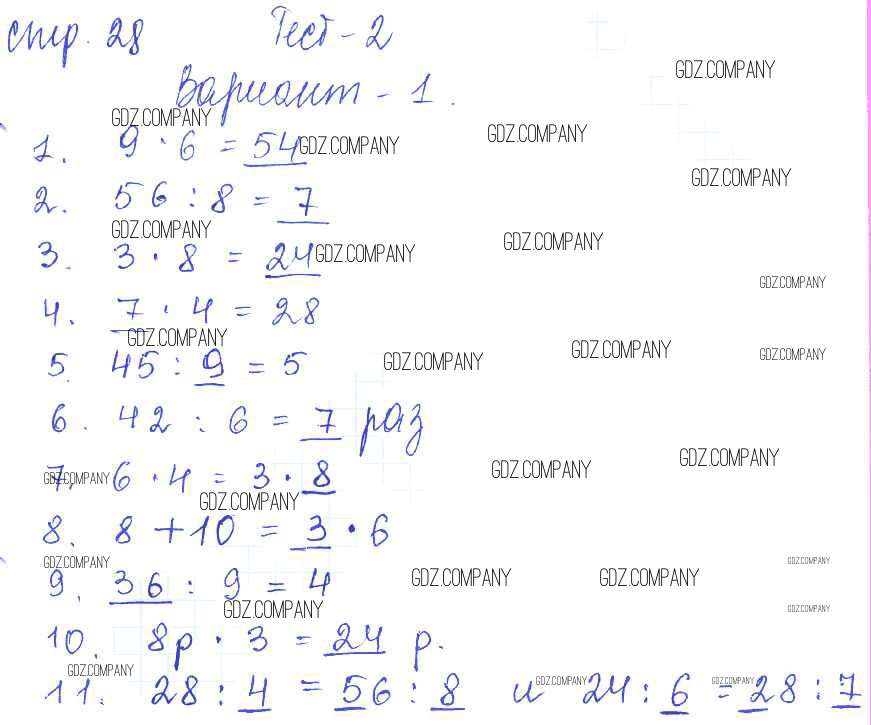 стр. 28 Тест - 2
GDZ.COMPANY
Вариант - 1.
GDZ.COMPANY
GDZ.COMPANY
1. 9 · 6 = 54 GDZ.COMPANY
GDZ.COMPANY
2. 56 : 8 = 7
GDZ.COMPANY
GDZ.COMPANY
3. 3 · 8 = 24 GDZ.COMPANY
GDZ.COMPANY
4. 7 · 4 = 28
GDZ.COMPANY
GDZ.COMPANY GDZ.COMPANY
5. 45 : 9 = 5 GDZ.COMPANY
6. 42 : 6 = 7 раз
GDZ.COMPANY GDZ.COMPANY
7. 6 · 4 = 3 · 8 GDZ.COMPANY
GDZ.COMPANY
8. 8 + 10 = 3 · 6
GDZ.COMPANY GDZ.COMPANY
9. 36 : 9 = 4 GDZ.COMPANY GDZ.COMPANY
GDZ.COMPANY GDZ.COMPANY
10. 8р · 3 = 24 р.
GDZ.COMPANY GDZ.COMPANY GDZ.COMPANY
11. 28 : 4 = 56 : 8 и 24 : 6 = 28 : 7